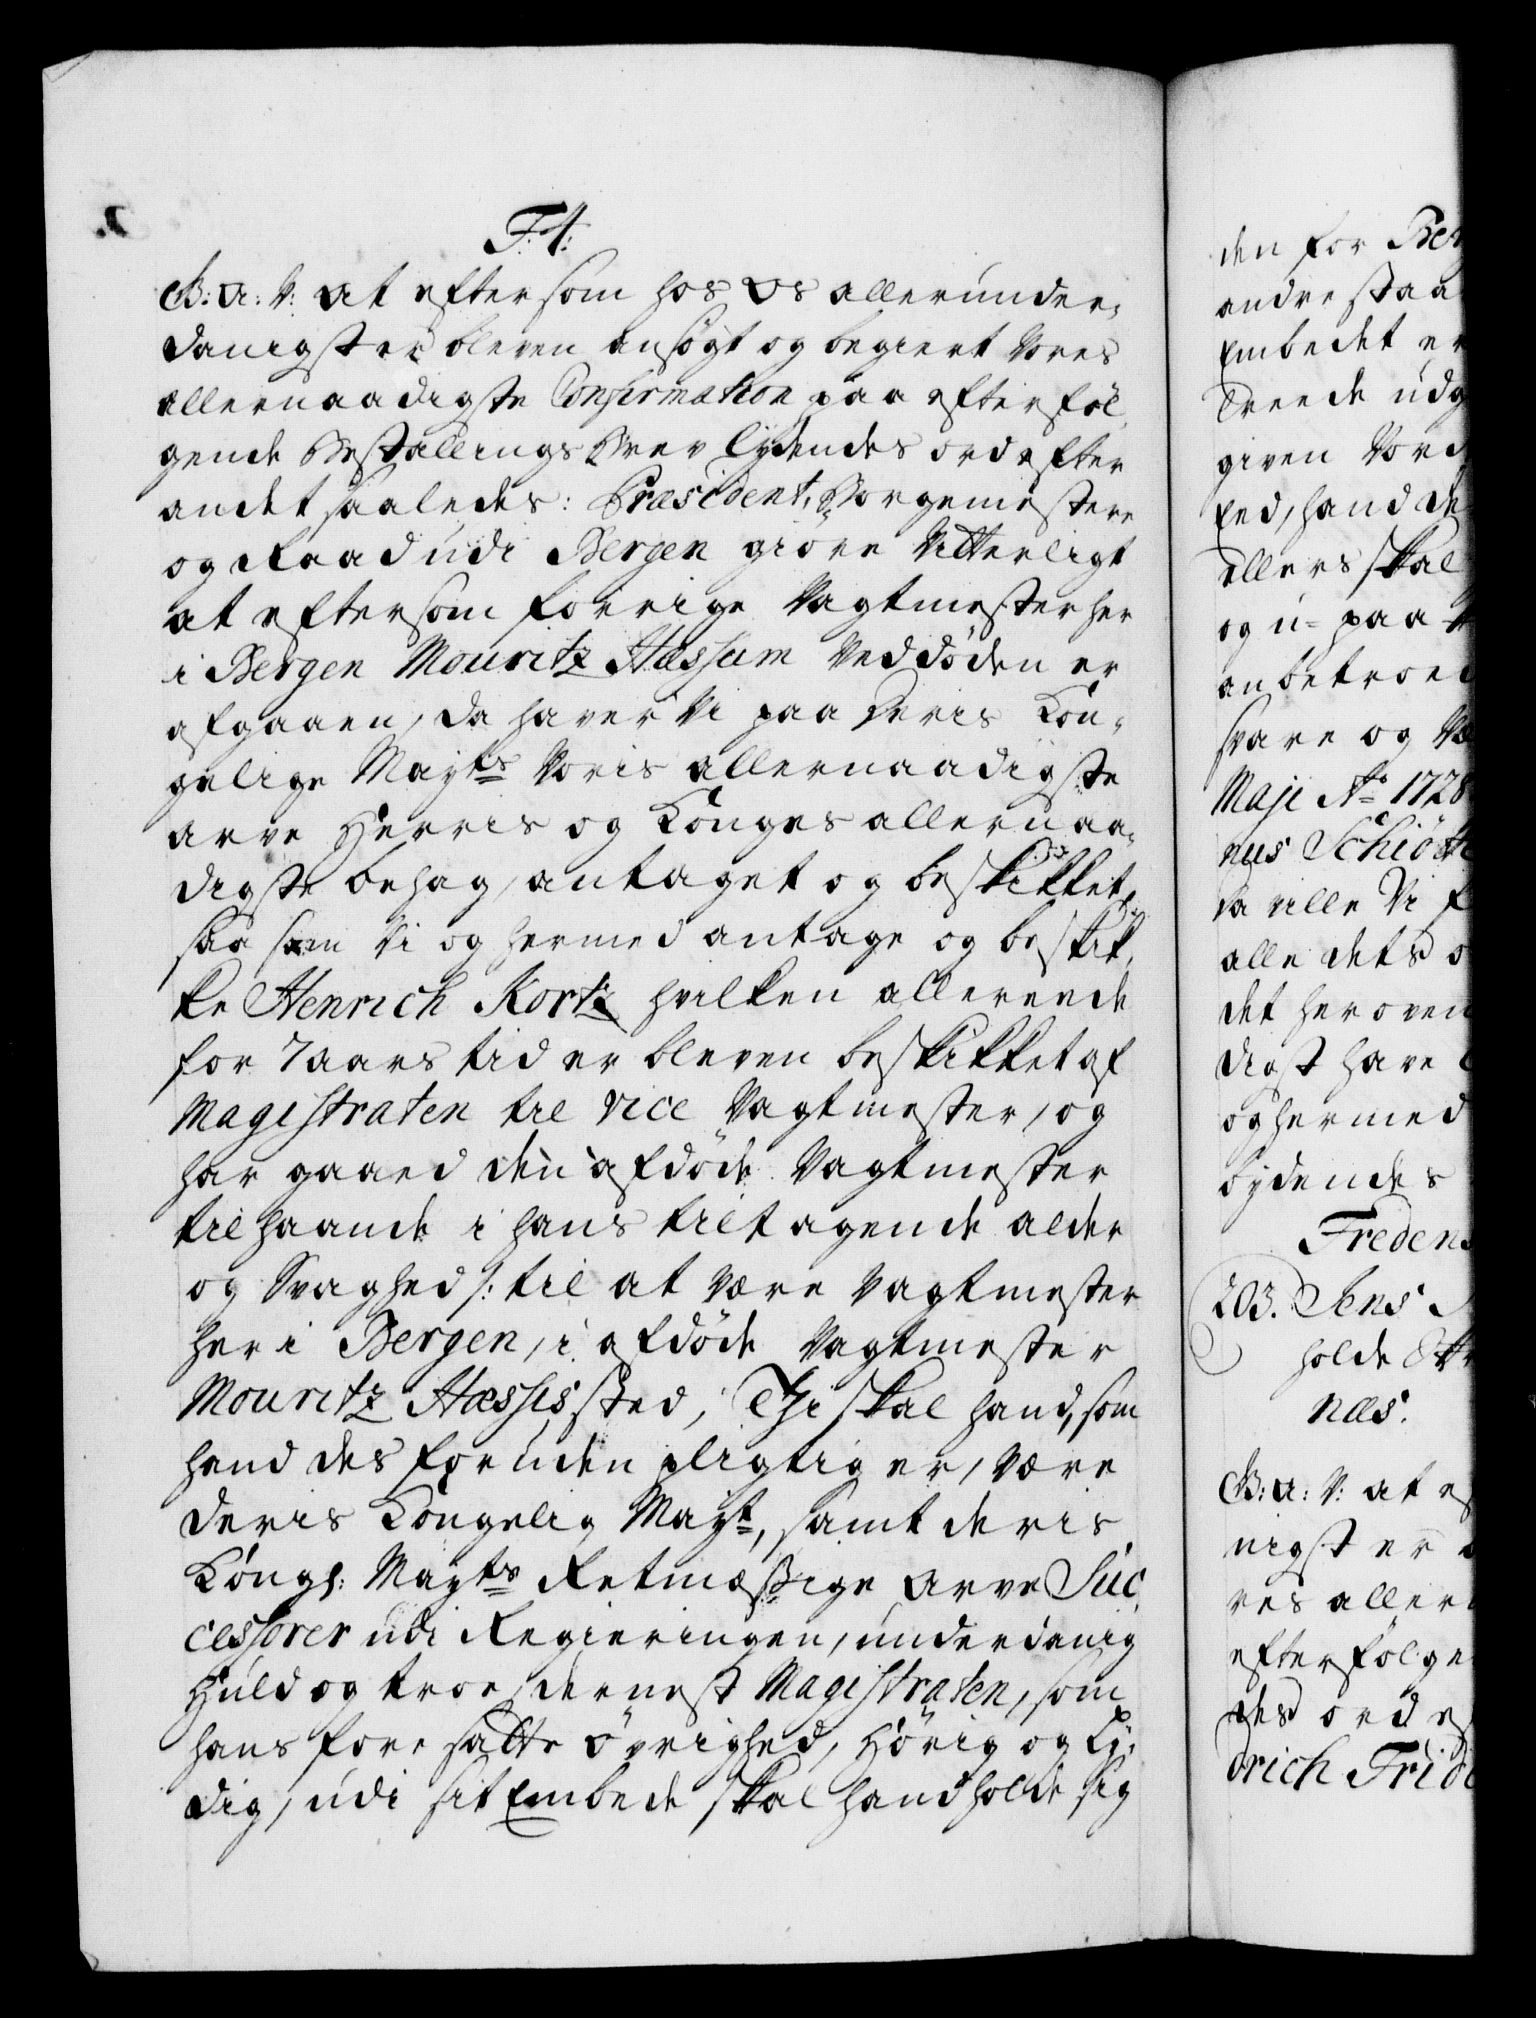 F:4:
G: A: V: at eftersom hos Os allerunder-
danigst er bleven ansøgt og begiert Vores
allernaadigste Confirmation paa efterføl-
gende Bestallings Brev lydendes ord efter
andet saaledes: Præsident, Borgemestere
og Raad udi Bergen giøre Vitterligt
at eftersom forrige Vagtmester her
i Bergen Mouritz Hæssum Ved døden er
afgaaen, da haver Vi paa Deris Kon-
gelige Mayts Voris allernaadigste
arve Herris og Konges allernaa-
digste behag, antaget og beskikket,
saa som Vi og hermed antage og beskik-
ke Henrich Kortz hvilken allereede
for 7 aars tid er bleven beskikket af
Magistraten til vice Vagtmester, og
har gaaed den afdøde Vagtmester
til haande i hans tiltagende alder
og Svaghed /: til at være Vagtmester
her i Bergen, i afdøde Vagtmester
Mouritz Hæssis sted, Thi skal hand, som
hand des foruden pligtig er, være
deris Kongelig Mayt, samt deris
Kongl: Mayts Retmæssige arve Suc-
cessorer udi Regieringen, underdanig
Huld og troe, dernest Magistraten, som
hans foresatte øvrighed, Hørig og Ly-
dig, udi sit Embede skal hand holde sig
den for Ber
andre staa
Embedet er
Treede udg
given Vord
Eed, hand de
ellers skal
og u- paa
anbetroed
svare og Væ
Maji Ao 1728
nus Schiøtt
Da ville Vi f
alle dets o
det heroven
digst have
og hermed
bydendes
Fredens
203. Jens
holde
næs.
G: A: V: at ef
nigst er
res aller
efterfølge
des ord ef
drich Frid